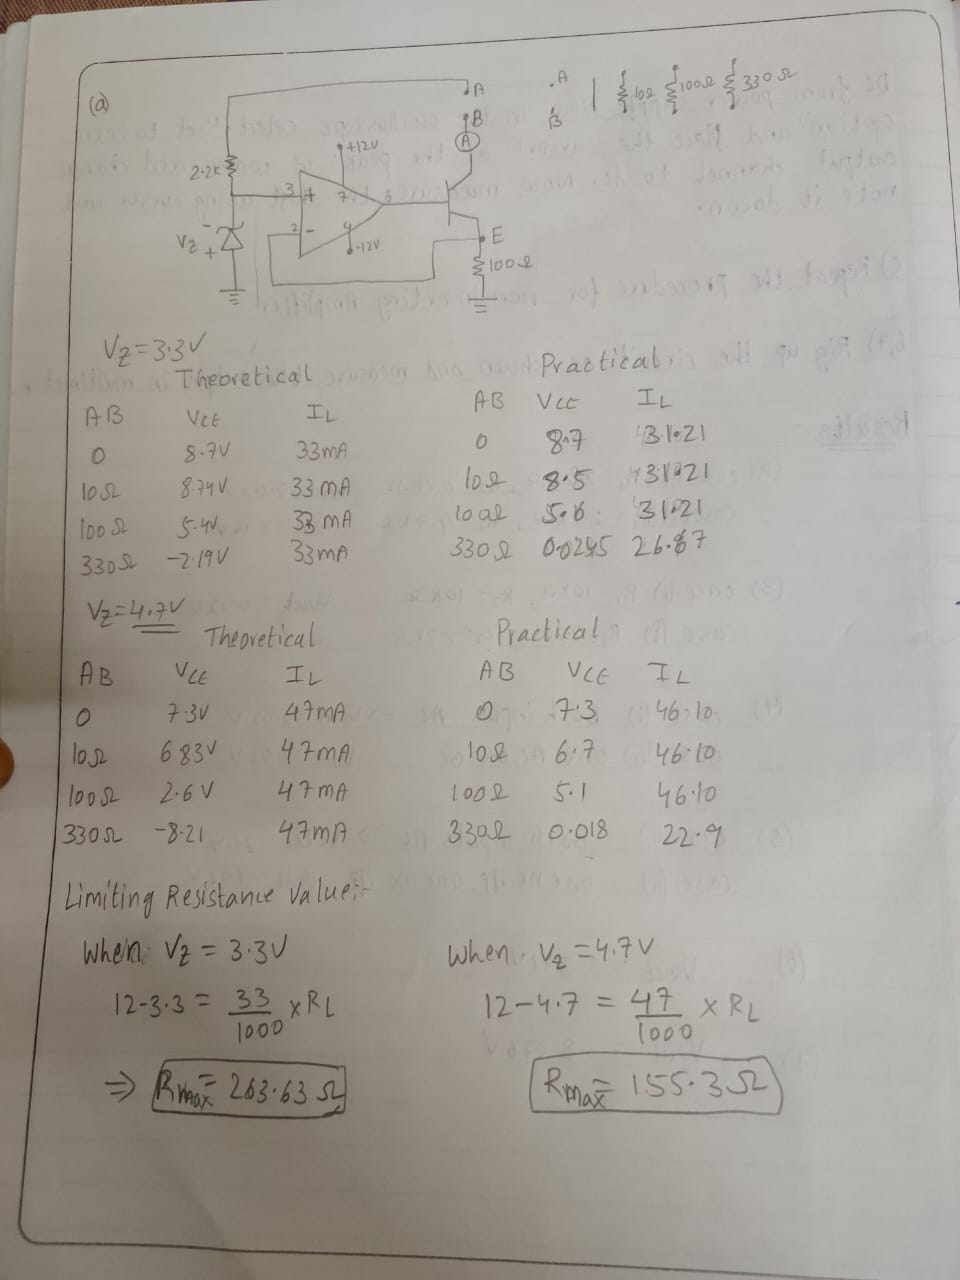 (a)
A
B
A
+12V
2.2K
3 + 7 6
2 - 4
-12V
Vz - +
E
100Ω
.A
B
10Ω 100Ω 330Ω
Vz = 3.3V
Theoretical
AB VCE IL
0 8.7V 33mA
10Ω 8.74V 33 mA
100Ω 5.4V 33 mA
330Ω -2.19V 33mA
Practical
AB VCE IL
0 8.7 31.21
10Ω 8.5 31.21
100Ω 5.6 31.21
330Ω 26.87
Vz = 4.7V
Theoretical
AB VCE IL
0 7.3V 47mA
10Ω 6.83V 47mA
100Ω 2.6V 47mA
330Ω -8.21 47mA
Practical
AB VCE IL
0 7.3 46.10
10Ω 6.7 46.10
100Ω 5.1 46.10
330Ω 0.018 22.9
Limiting Resistance Value:-
When Vz = 3.3V
12-3.3 = 33/1000 × RL
⇒ Rmax = 263.63 Ω
When Vz = 4.7V
12-4.7 = 47/1000 × RL
Rmax = 155.3 Ω